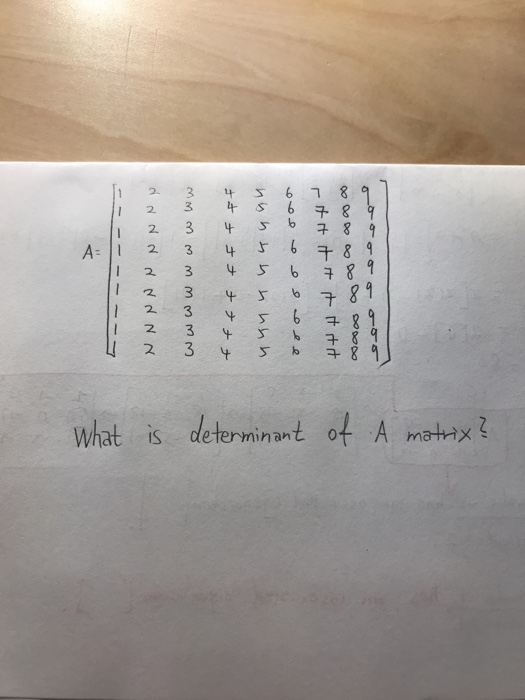 1 2 3 4 5 6 7 8 9
1 2 3 4 5 6 7 8 9
1 2 3 4 5 6 7 8 9
A= 1 2 3 4 5 6 7 8 9
1 2 3 4 5 6 7 8 9
1 2 3 4 5 6 7 8 9
1 2 3 4 5 6 7 8 9
1 2 3 4 5 6 7 8 9
1 2 3 4 5 6 7 8 9
What is determinant of A matrix?